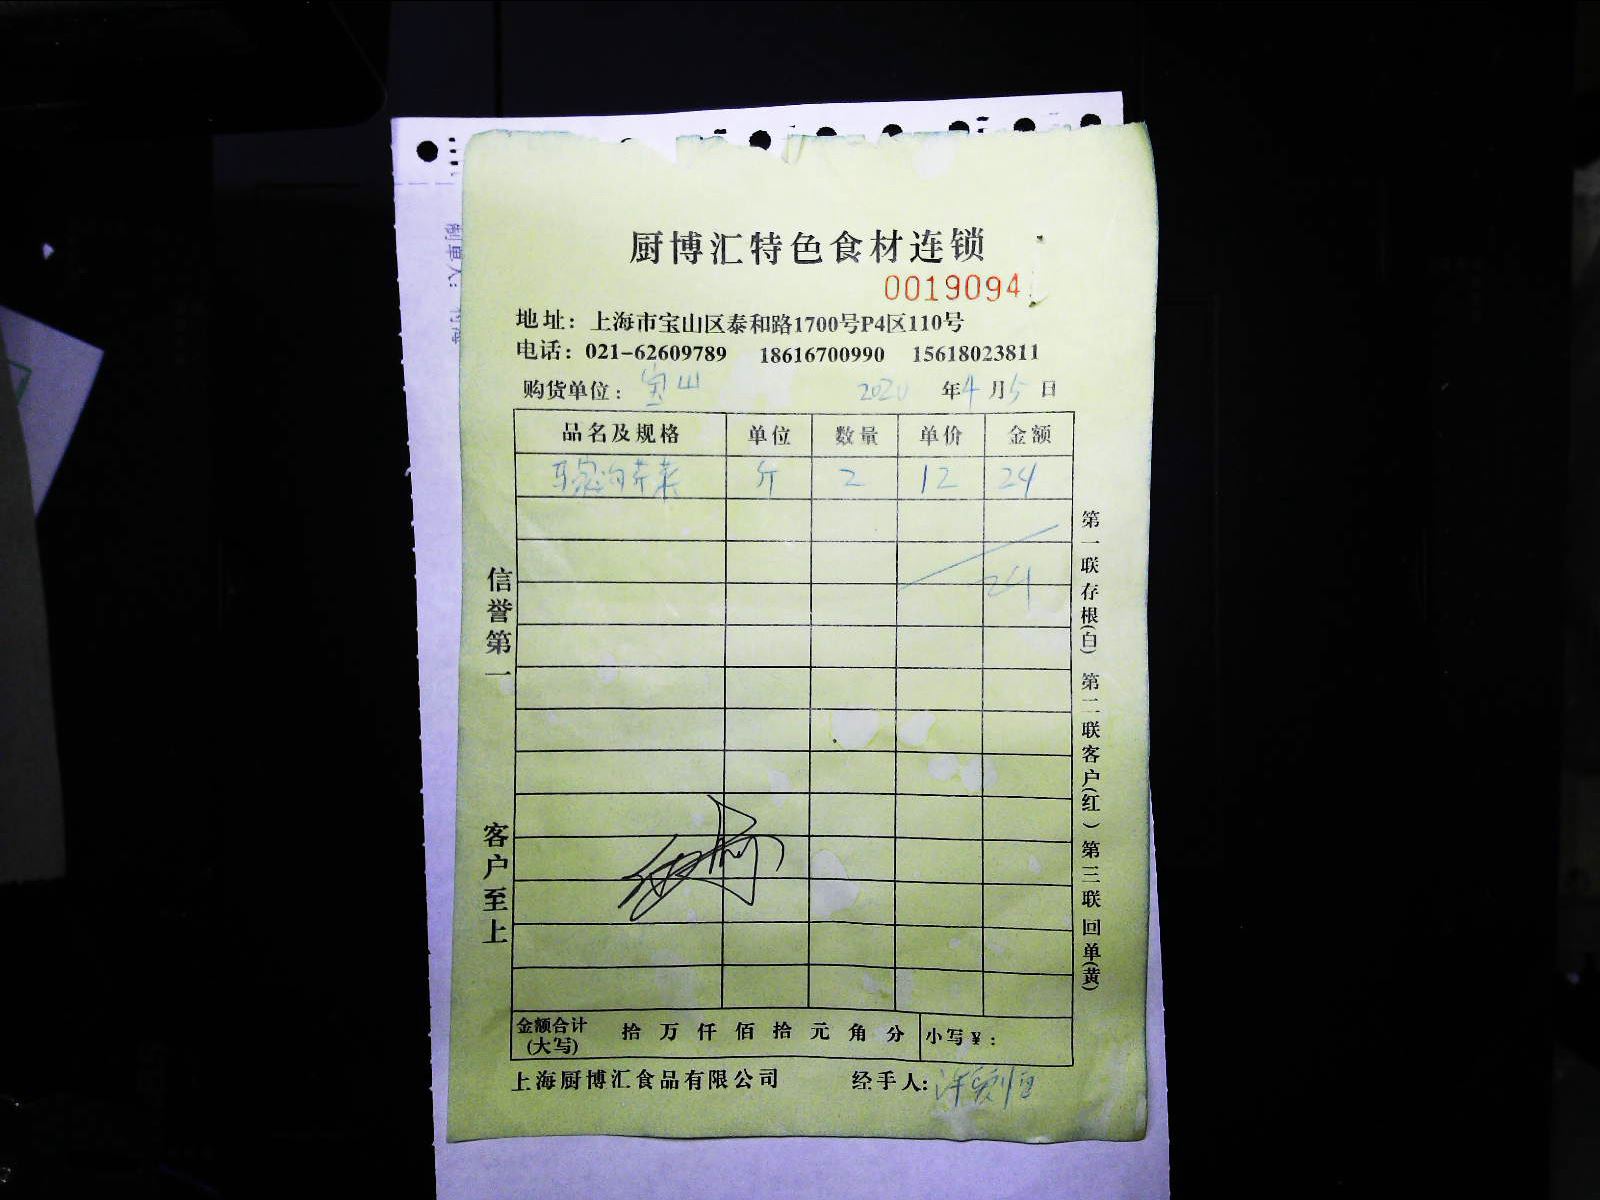 厨博汇特色食材连锁
0019094
地址：上海市宝山区泰和路1700号P4区110号
电话：021-62609789 18616700990 15618023811
购货单位：宝山 2020年4月5日
品名及规格 单位 数量 单价 金额
马家沟芹菜 斤 2 12 24
24
信誉第一
客户至上
第一联存根(白) 第二联客户(红) 第三联回单(黄)
金额合计 拾 万 仟 佰 拾 元 角 分 小写¥：
(大写)
上海厨博汇食品有限公司 经手人：
制单人：